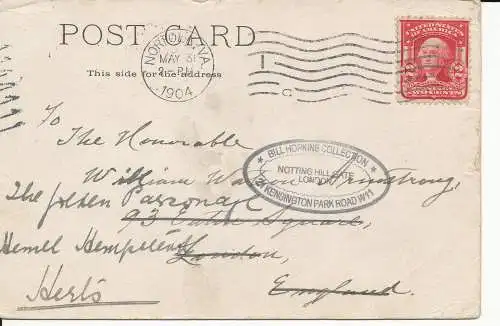 POST CARD
This side for the address
NORFOLK, VA.
MAY 31
2- PM
1904
1
C
UNITED STATES
OF AMERICA
2 2
TWO CENTS
To
The Honorable
William Watson Armstrong,
93 Eaton Square,
London,
England.
The Golden Parsonage
Hemel Hempstead
Herts
★ BILL HOPKINS COLLECTION ★
NOTTING HILL GATE
LONDON
KENSINGTON PARK ROAD W11